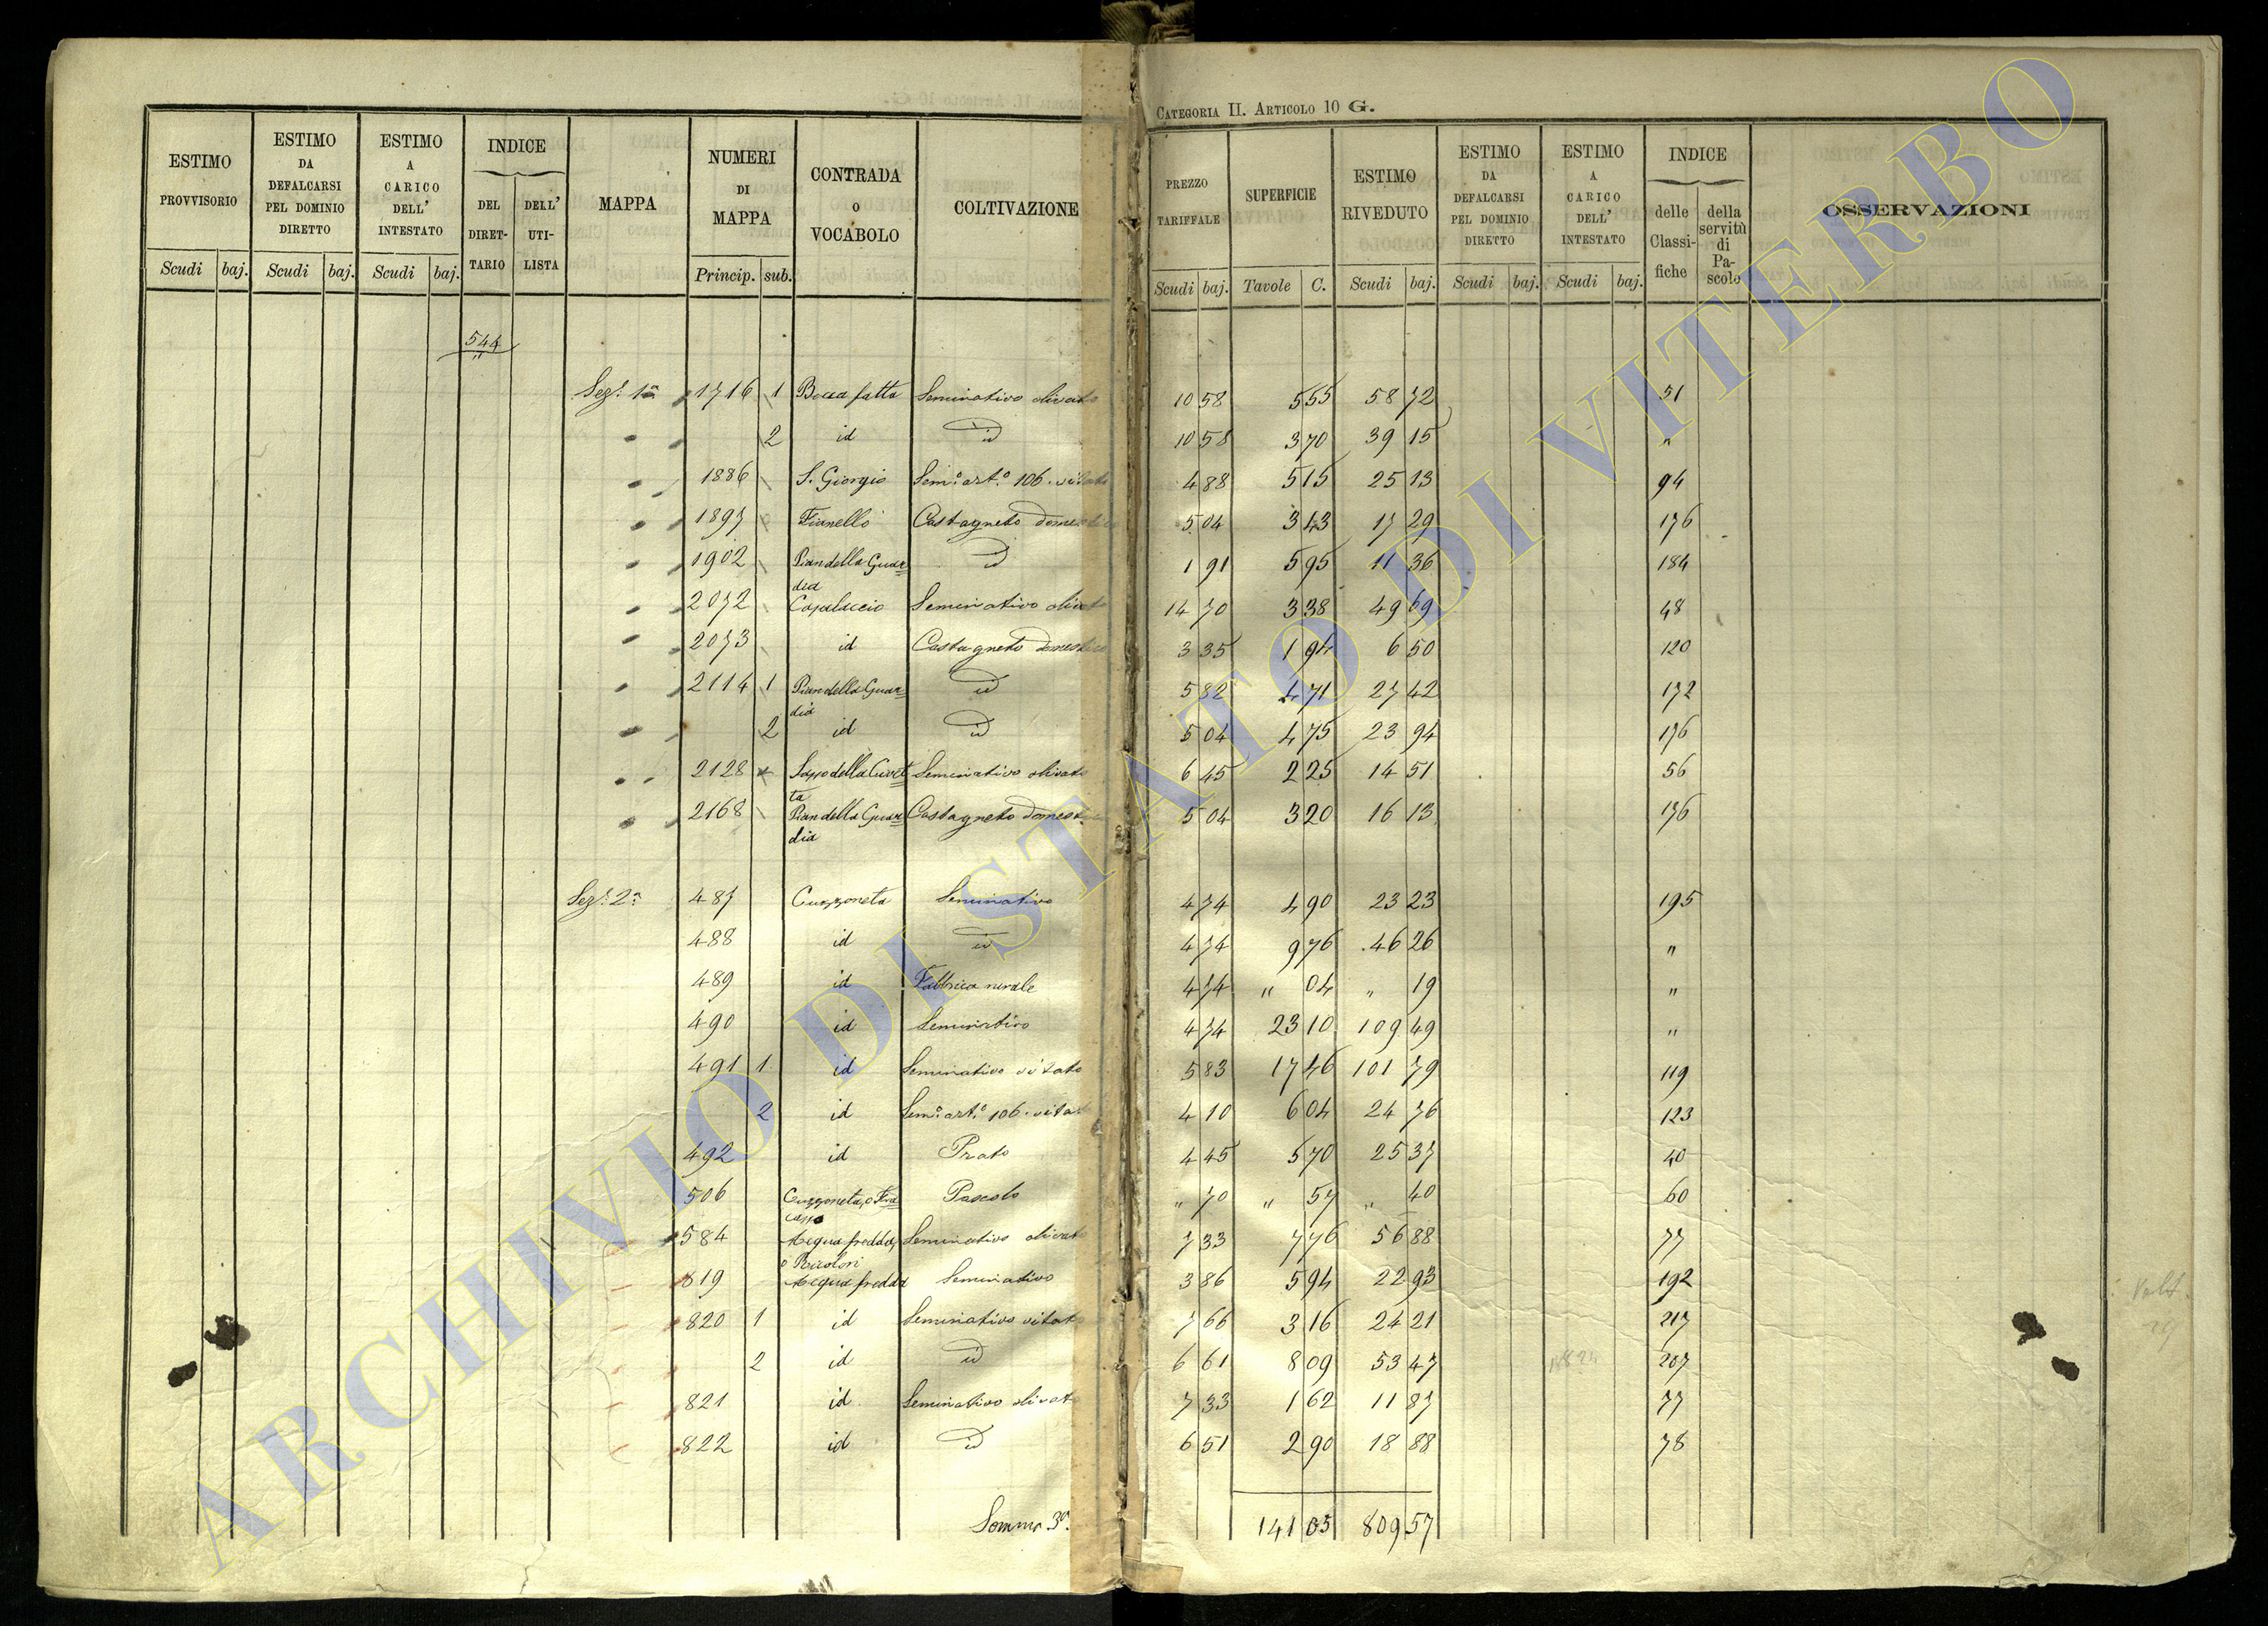 CATEGORIA II. ARTICOLO 10 G.
ESTIMO PROVVISORIO Scudi baj.
ESTIMO DA DEFALCARSI PEL DOMINIO DIRETTO Scudi baj.
ESTIMO A CARICO DELL' INTESTATO Scudi baj.
INDICE DEL DIRET-TARIO DELL' UTI-LISTA
MAPPA
NUMERI DI MAPPA Princip. sub.
CONTRADA O VOCABOLO
COLTIVAZIONE
PREZZO TARIFFALE Scudi baj.
SUPERFICIE Tavole C.
ESTIMO RIVEDUTO Scudi baj.
ESTIMO DA DEFALCARSI PEL DOMINIO DIRETTO Scudi baj.
ESTIMO A CARICO DELL' INTESTATO Scudi baj.
INDICE delle Classi-fiche della servitù di Pa-scolo
OSSERVAZIONI
544
Sez.e 1a 1716 1 Bocca fatta Seminativo olivato 10 58 5 55 58 72 51
2 id id 10 58 3 70 39 15 "
1886 S. Giorgio Sem.o art.o 106. vitato 4 88 5 15 25 13 94
1897 Fianello Castagneto domestico 5 04 3 43 17 29 176
1902 Pian della Guar=dia id 1 91 5 95 11 36 184
2072 Casaluccio Seminativo olivato 14 70 3 38 49 69 48
2073 id Castagneto domestico 3 35 1 94 6 50 120
2114 1 Pian della Guar=dia id 5 82 4 71 27 42 172
2 id id 5 04 4 75 23 94 176
2128 Sasso della Civet=ta Seminativo olivato 6 45 2 25 14 51 56
2168 Pian della Guar=dia Castagneto domest. 5 04 3 20 16 13 176
Sez.e 2a 487 Cuzzoneta Seminativo 4 74 4 90 23 23 195
488 id id 4 74 9 76 46 26 "
489 id Fabbrica rurale 4 74 " 04 " 19 "
490 id Seminativo 4 74 23 10 109 49 "
491 1 id Seminativo vitato 5 83 17 46 101 79 119
2 id Sem.o art.o 106. vitato 4 10 6 04 24 76 123
492 id Prato 4 45 5 70 25 37 40
506 Cuzzoneta, o Fra=casso Pascolo " 70 " 57 " 40 60
584 Acqua fredda, o Seminativo olivato 7 33 7 76 56 88 77
819 Acqua fredda Seminativo 3 86 5 94 22 93 192
820 1 id Seminativo vitato 7 66 3 16 24 21 217
2 id id 6 61 8 09 53 47 207
821 id Seminativo olivato 7 33 1 62 11 87 77
822 id id 6 51 2 90 18 88 78
Somma 3a. 141 05 809 57
ARCHIVIO DI STATO DI VITERBO